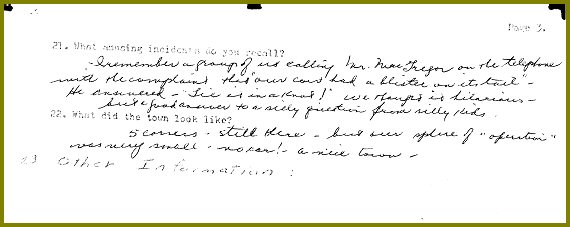 Page 3.
21. What amusing incidents do you recall?
I remember a group of us calling Mr. MacGregor on the telephone
with the complaint this "our cow had a blister on its tail" -
He answered - "Tie is in a knot!" we thought is hilarious -
but a good answer to a silly question from silly kids.
22. What did the town look like?
5 corners - still there - but our sphere of "operation"
was very small - no car! - a nice town -
23 Other Information: